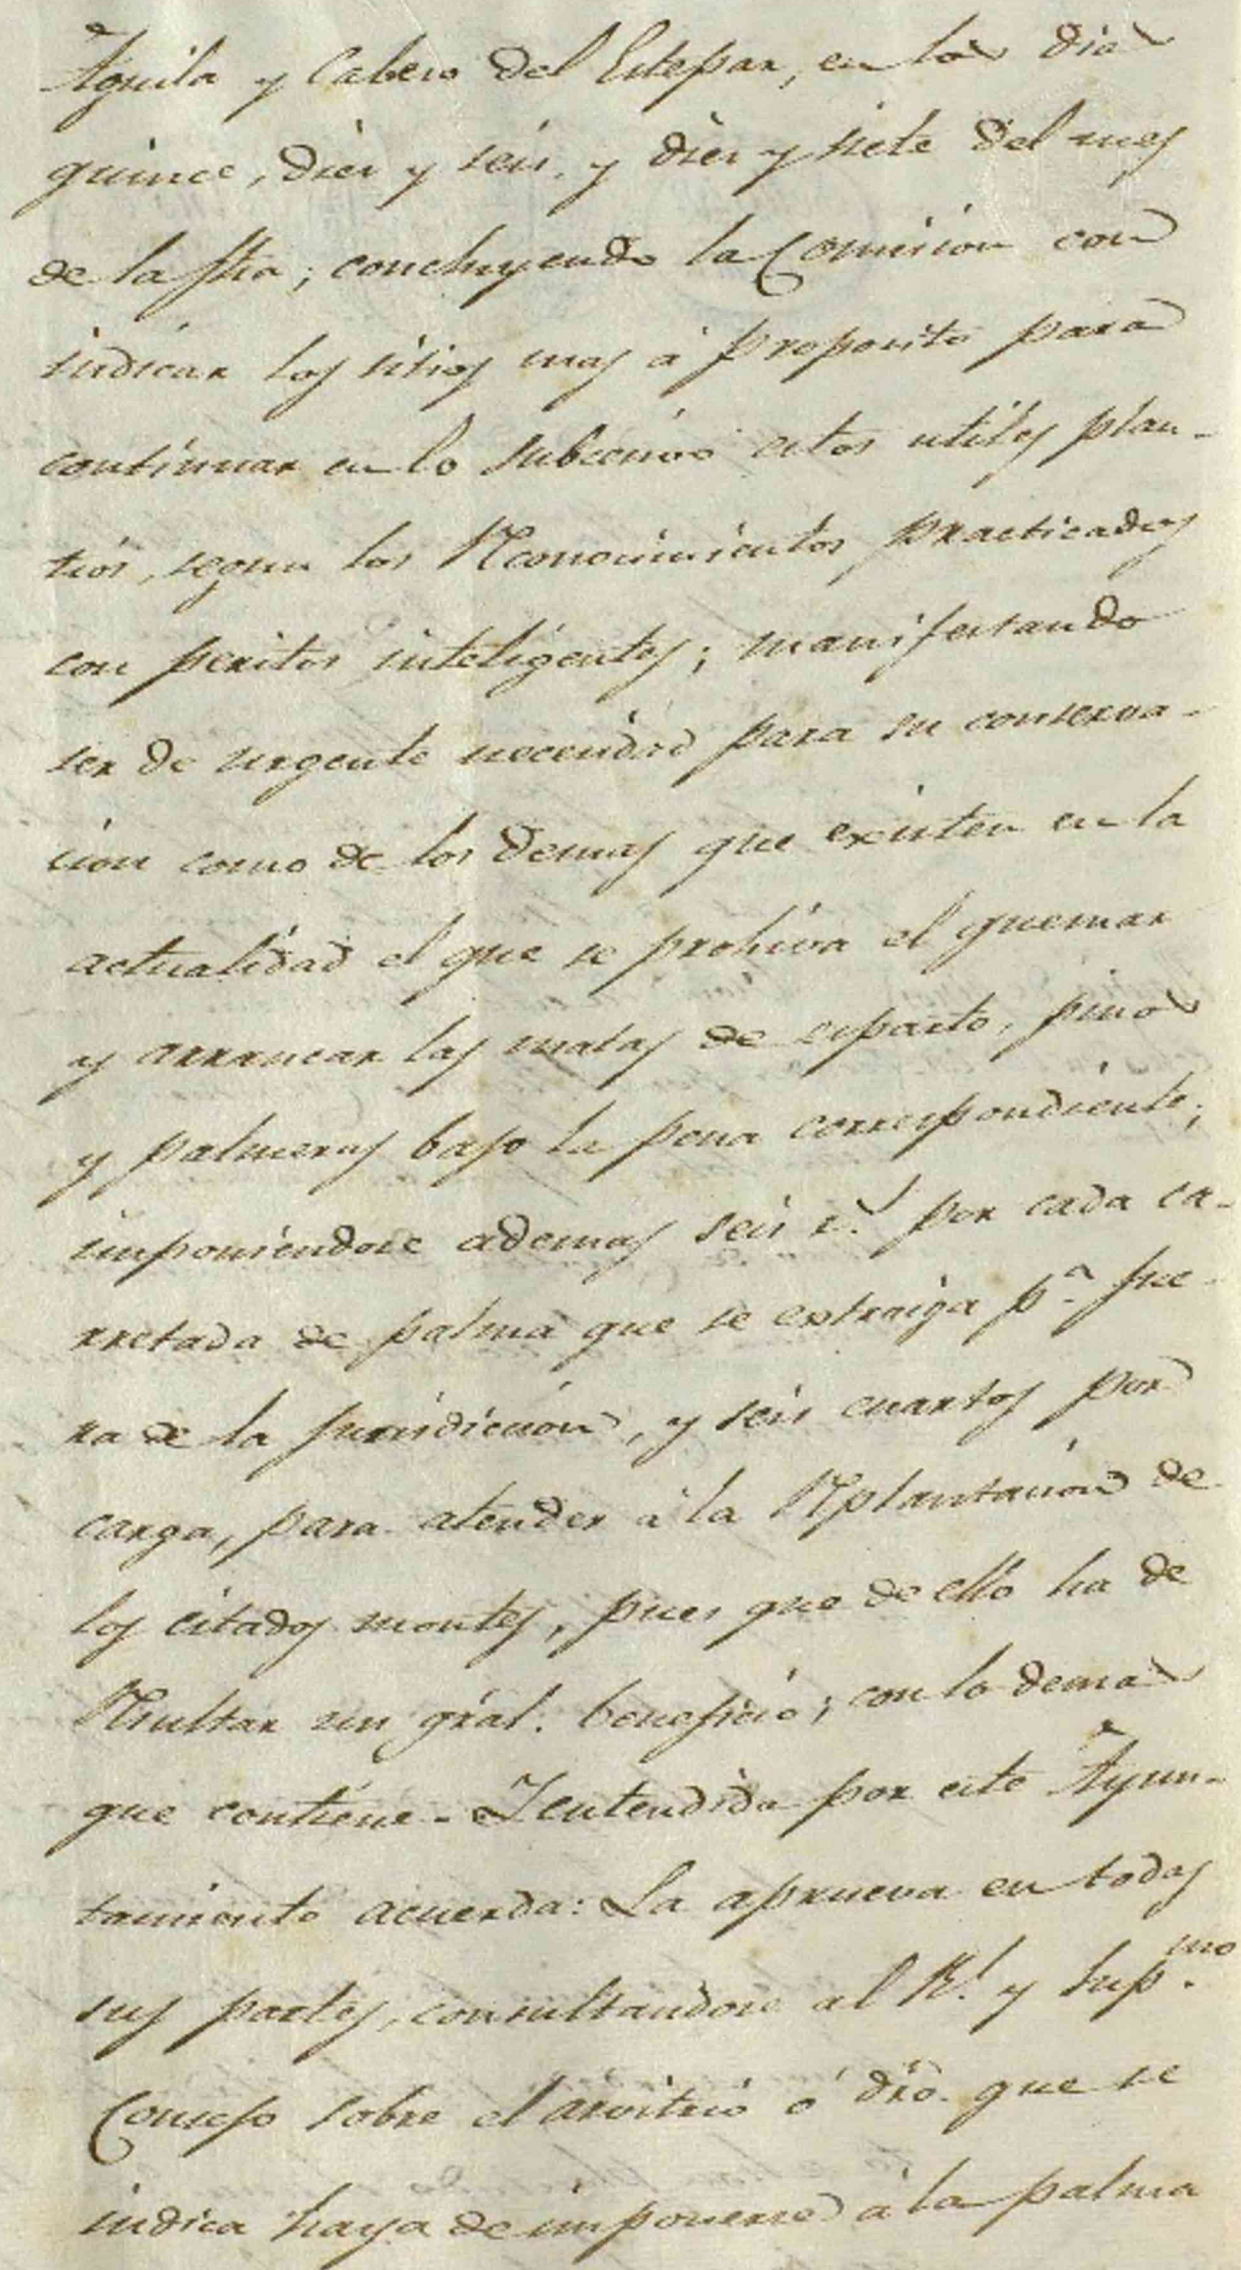 Aguila y Cabezo del Estepar, en los dias
quince, diez y seis, y diez y siete del mes
de la fha; concluyendo la Comision con
indicar los sitios mas á proposito para
continuar en lo subcesivo estos utiles plan-
tios, segun los Reconocimientos practicados
con peritos inteligentes; manifestando
ser de urgente necesidad para su conserva-
cion como de los demas que existen en la
actualidad el que se prohiva el quemar
y arrancar las matas de esparto, pinos
y palmeras bajo la pena correspondiente;
imponiendose ademas seis r.l por cada ca-
rretada de palma que se extraiga p.a fue-
ra de la jurisdiccion, y seis cuartos por
carga, para atender á la Rplantacion de
los citados montes, pues que de ello ha de
Resultar un gral. beneficio; con lo demas
que contiene - Y entendida por este Ayun-
tamiento acuerda: La aprueva en todas
sus partes, consultandose al R.l y Sup.mo
Consejo sobre el arvitrio ó dro. que se
indica haya de imponerse á la palma